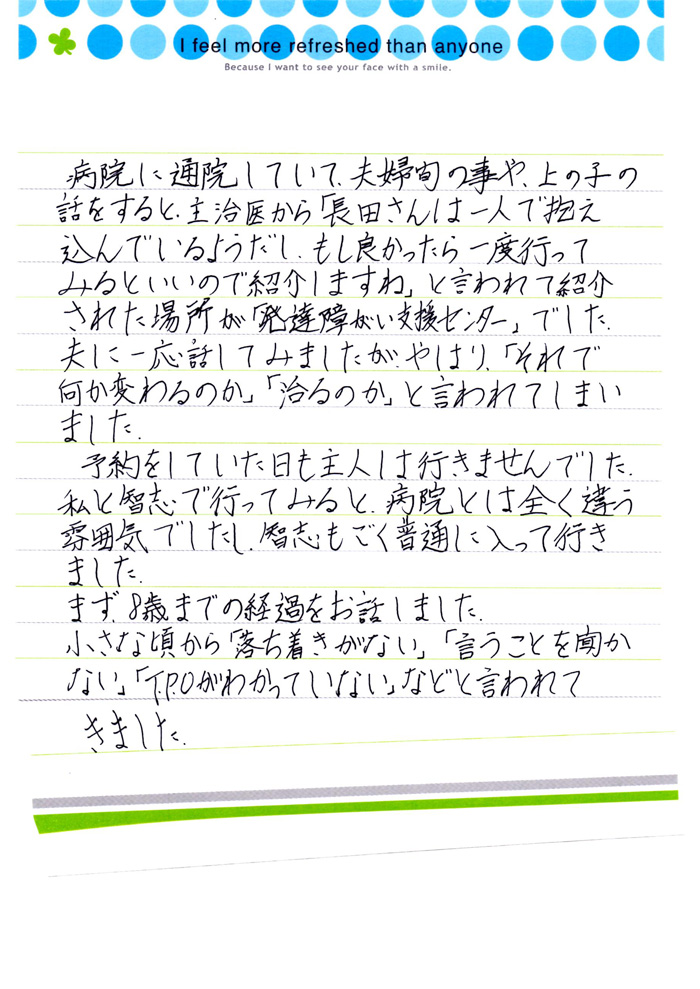 I feel more refreshed than anyone
Because I want to see your face with a smile.
病院に通院していて、夫婦旬の事や、上の子の
話をすると、主治医から「長田さんは一人で抱え
込んでいるようだし、もし良かったら一度行って
みるといいので紹介しますね」と言われて紹介
された場所が「発達障がい支援センター」でした。
夫に一応話してみましたが、やはり、「それで
何か変わるのか」「治るのか」と言われてしまい
ました。
予約をしていた日も主人は行きませんでした。
私と智志で行ってみると、病院とは全く違う
雰囲気でしたし、智志もごく普通に入って行き
ました。
まず、8歳までの経過をお話しました。
小さな頃から「落ち着きがない」「言うことを聞か
ない」「T.P.Oがわかっていない」などと言われて
きました。